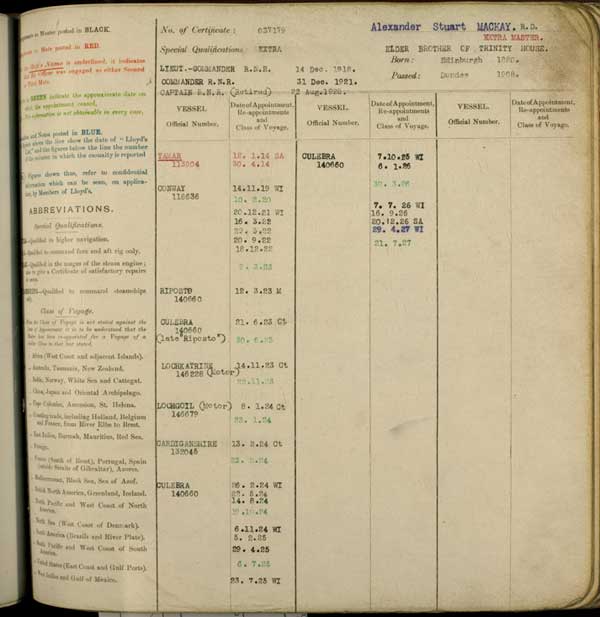 as Master posted in BLACK.
as Mate posted in RED.
Name is underlined, it indicates
Officer was engaged as either Second
Mate.
in GREEN indicate the approximate date on
the appointment ceased,
information is not obtainable in every case.
and Notes posted in BLUE.
above the line show the date of "Lloyd's
List," and the figures below the line the number
of the column in which the casualty is reported
Figures shown thus, refer to confidential
information which can be seen, on application,
by Members of Lloyd's.
ABBREVIATIONS.
Special Qualifications.
Qualified in higher navigation.
Qualified to command fore and aft rig only.
Qualified in the usages of the steam engine;
able to give a Certificate of satisfactory repairs
at sea.
Qualified to command steamships
only.
Class of Voyage.
Class of Voyage is not stated against the
date of Appointment it is to be understood that the
Africa (West Coast and adjacent Islands).
Australia, Tasmania, New Zealand.
Baltic, Norway, White Sea and Cattegat.
China, Japan and Oriental Archipelago.
Cape Colonies, Ascension, St. Helena.
Coasting trade, including Holland, Belgium
and France, from River Elbe to Brest.
East Indies, Burmah, Mauritius, Red Sea.
Foreign.
France (South of Brest), Portugal, Spain
(outside Straits of Gibraltar), Azores.
Mediterranean, Black Sea, Sea of Azof.
British North America, Greenland, Iceland.
North Pacific and West Coast of North
America.
North Sea (West Coast of Denmark).
South America (Brazils and River Plate).
South Pacific and West Coast of South
America.
United States (East Coast and Gulf Ports).
West Indies and Gulf of Mexico.
No. of Certificate: 037179
Alexander Stuart MACKAY. R.D.
EXTRA MASTER.
Special Qualifications EXTRA
ELDER BROTHER OF TRINITY HOUSE.
Born: Edinburgh 1880.
LIEUT.-COMMANDER R.N.R. 14 Dec. 1918.
Passed: Dundee 1908.
COMMANDER R.N.R. 31 Dec. 1921.
CAPTAIN R.N.R. (Retired) 22 Aug.1929.
VESSEL
Official Number.
Date of Appointment,
Re-appointments
and
Class of Voyage.
VESSEL
Official Number.
Date of Appointment,
Re-appointments
and
Class of Voyage.
VESSEL
Official Number.
Date of Appointment,
Re-appointments
and
Class of Voyage.
TAMAR 12. 1.14 SA
113004 30. 4.14
CONWAY 14.11.19 WI
118636 10. 2.20
20.12.21 WI
16. 3.22
20. 9.22
18.12.22
RIPOSTO 12. 3.23 M
140660
CULEBRA 21. 6.23 Ct
140660
(late "Riposto") 30. 6.23
LOCHKATRINE 14.11.23 Ct
146228 (Motor)
LOCHGOIL (Motor) 8. 1.24 Ct
146679
23. 1.24
CARDIGANSHIRE 13. 2.24 Ct
132045
CULEBRA 26. 2.24 WI
140660
14. 8.24
6.11.24 WI
5. 2.25
29. 4.25
6. 7.25
23. 7.25 WI
CULEBRA 7.10.25 WI
140660 6. 1.26
30. 3.26
7. 7. 26 WI
16. 9.26
20.12.26 SA
29. 4.27 WI
21. 7.27